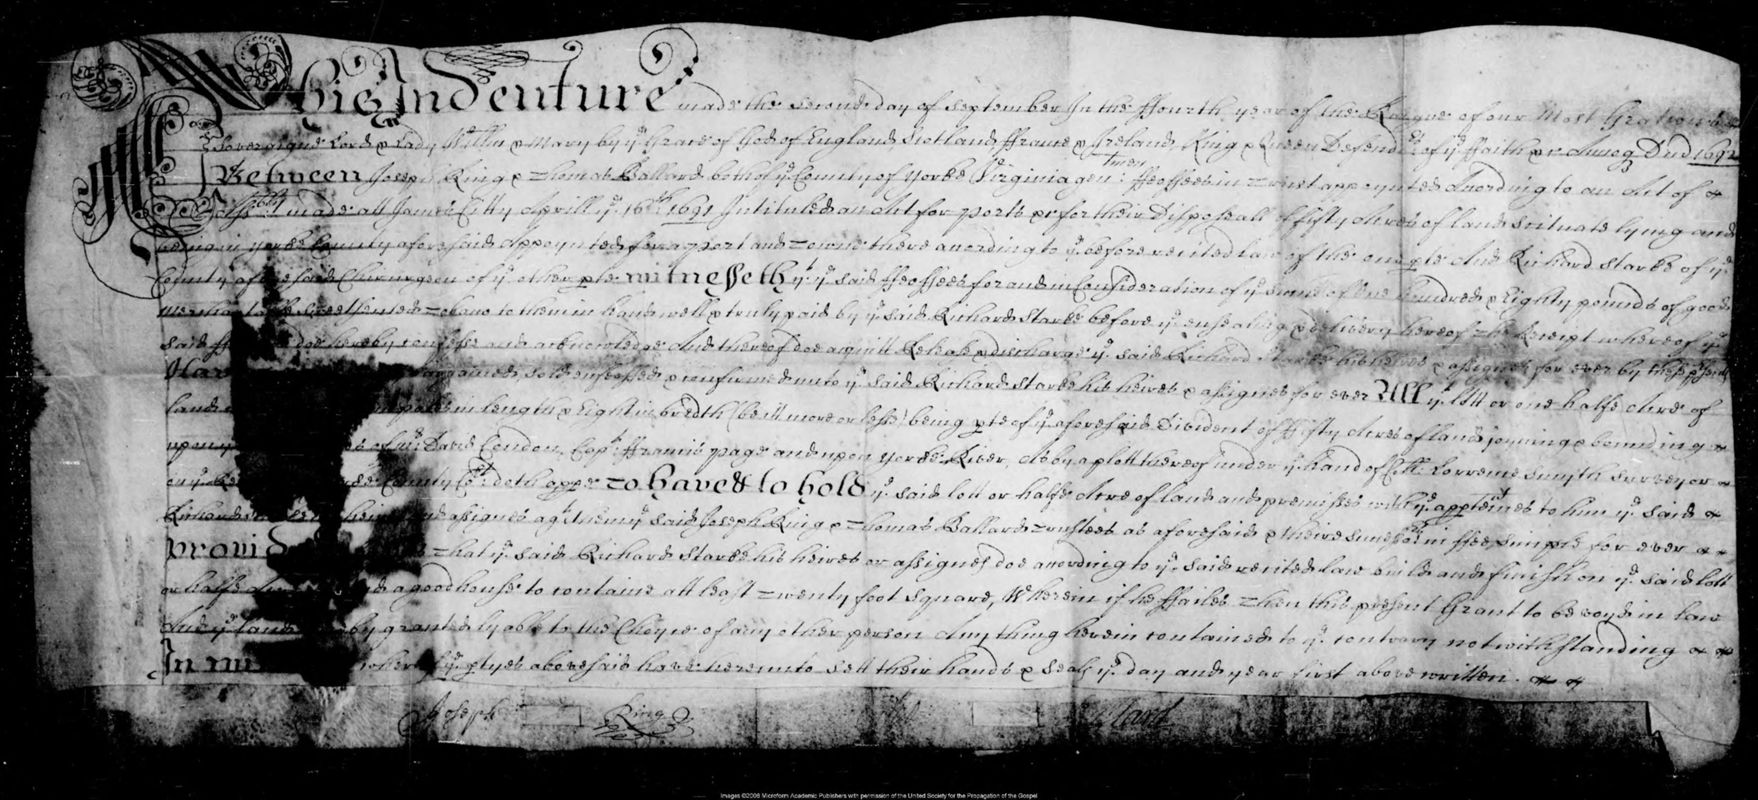 This Indenture made the second day of September In the ffourth year of the Reigne of our Most Gratious
Soveraigne Lord & Lady Willm & Mary by ye Grace of God of England, Scotland, ffrance & Ireland, King & Queen Defendrs of ye ffaith &c Annoq Dni 1692
Between Joseph Ring & Thomas Ballard both of ye County of Yorke Virginia gen: ffeoffees in Trust appoynted According to an Act of
made att James Citty Aprill ye 16th 1691 Intituled an Act for ports &c for their Disposeall of fifty Acres of land scituate lying and
being in Yorke County aforesaid Appoynted for a port and Towne there according to ye before recited law of the one pte And Richard Starke of ye
County aforesaid Chirurgeon of ye other pte Witnesseth yt ye said ffeoffees for and in Consideration of ye summ of One hundred & Eighty pounds of good
Tobaco to them in hand well & truly paid by ye said Richard Starke before ye ensealing & delivery hereof The Receipt whereof ye
said doe hereby confess and acknowledge And thereof doe acquitt Release & discharge ye said Richard Starke his heires & assignes for ever by these psents
Have sold enfeoffed & confirmed unto ye said Richard Starke his heires & assignes for ever All yt lott or one halfe Acre of
land in length & Eight in bredth (be itt more or less) being pte of ye aforesaid Divident of ffifty Acres of land joyning & bounding
upon ye of mr David Condon, Capt ffrancis Page and upon Yorke River, As by a plott thereof under ye hand of Coll: Lorrence Smyth Surveyor
County Cort doth appe To have & to hold ye said lott or halfe Acre of land and premisses with ye apptennces to him ye said
Richard and assignes agt them ye said Joseph Ring & Thomas Ballard Trustees as aforesaid & their in ffee simple for ever
Provided That ye said Richard Starke his heires or assignes doe according to ye said recited law build and finish on ye said lott
or halfe a good house to containe att least Twenty foot square, Wherein if he ffailes Then this present Grant to be voyd in law
And ye land granted lyable to the Choyce of any other person Any thing herein contained to ye contrary notwithstanding
In whereof ye ptyes abovesaid have hereunto sett their hands & seals ye day and year first above written.
Joseph Ring
Images ©2006 Microform Academic Publishers with permission of the United Society for the Propagation of the Gospel